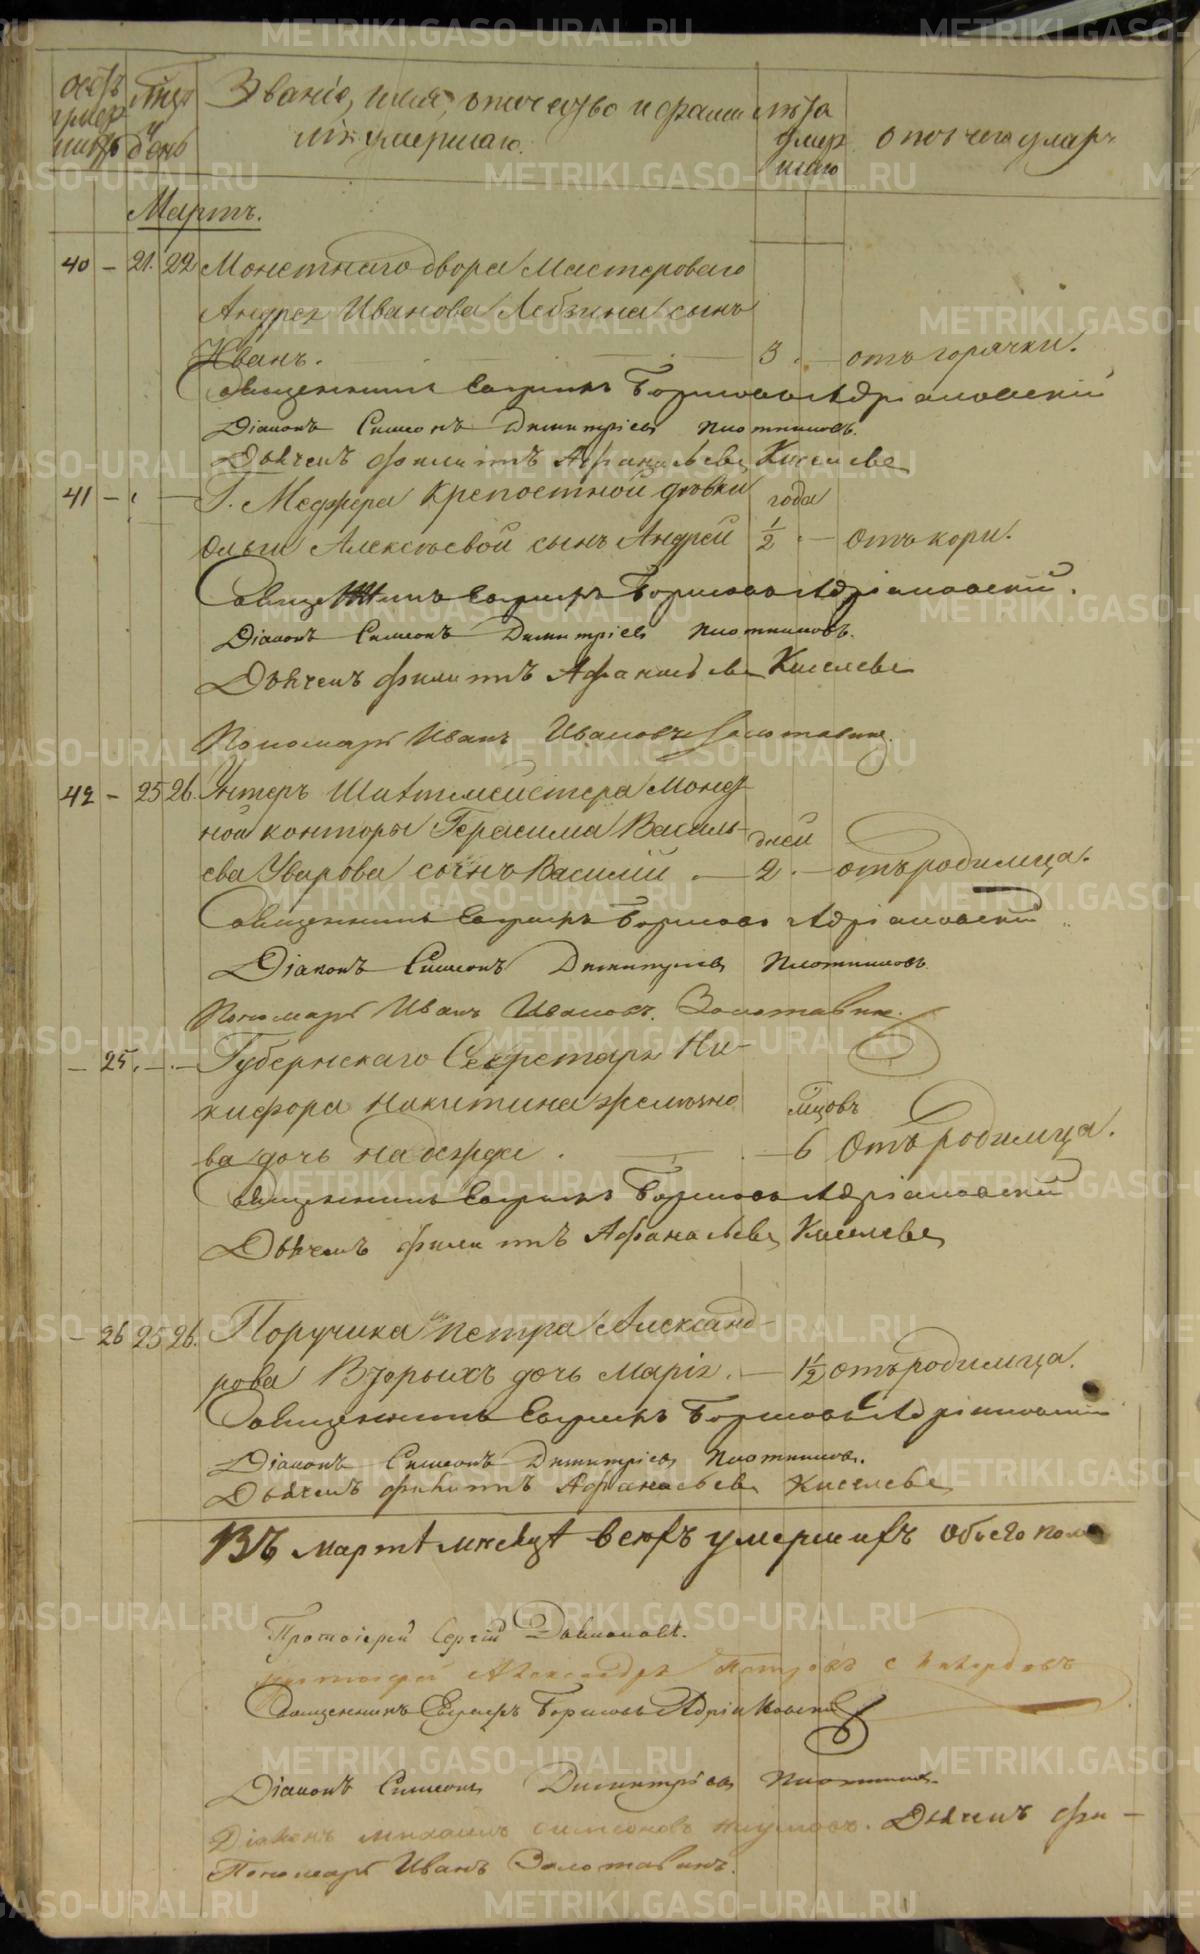 METRIKI.GASO-URAL.RU
Званіе, имя, отечество и фами
лія умершаго.
лѣта
умер
шаго
отъ чего умеръ
Мѣсяцъ
и
день
Мартъ.
40 - 21. 22 Монетнаго двора Мастероваго
Андрея Иванова Лебзина сынъ
Иванъ. 3. — отъ горячки.
Священникъ Евфимъ Борисовъ Адріановскій
Діаконъ Симеонъ Димитріевъ Плотниковъ.
Дьячекъ Филиппъ Афанасьевъ Киселевъ
41 - Г. Меджера крепостной дѣвки года
Ольги Алексѣевой сынъ Андрей 1/2 — отъ кори.
Священникъ Борисовъ Адріановскій.
Діаконъ Симеонъ Димитріевъ Плотниковъ.
Дьячекъ Филиппъ Афанасьевъ Киселевъ
Пономарь Иванъ Ивановъ Золотавинъ.
42 - 25 26. Унтеръ Шихтмейстера Монет
ной конторы Герасима Василь-
ева Уварова сынъ Василій дней
2. — отъ родимца.
Священникъ Борисовъ Адріановскій
Діаконъ Симеонъ Димитріевъ Плотниковъ
Пономарь Иванъ Ивановъ Золотавинъ.
— 25. — Губернскаго Секретаря Ни-
кифора Никитина Желѣзно
ва дочь Надежда. мцовъ
6 отъ родимца.
Священникъ Борисовъ Адріановскій
Дьячекъ Филиппъ Афанасьевъ Киселевъ
— 26 25 26. Поручика Петра Александ-
рова Вторыхъ дочь Марія. — 1 1/2 отъ родимца.
Священникъ Борисовъ Адріановскій
Діаконъ Симеонъ Димитріевъ Плотниковъ.
Дьячекъ Филиппъ Афанасьевъ Киселевъ
Въ мартѣ мѣсяцѣ всѣхъ умершихъ обоего пола
Протоіерей Сергій
Александръ Петровъ
Священникъ Борисовъ Адріановскій
Діаконъ Симеонъ Димитріевъ Плотниковъ
Діаконъ Михаилъ Симеоновъ Наумовъ. Дьячекъ Фи-
Пономарь Иванъ Золотавинъ.